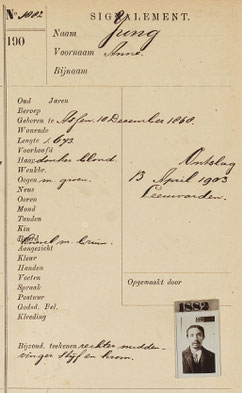 No. 1882
SIGNALEMENT.
190
Naam Jung
Voornaam Anne.
Bijnaam
Oud Jaren
Beroep
Geboren te Assen. 10 December 1868.
Wonende
Lengte 1.673
Voorhoofd
Haar donker blond. Ontslag
Wenkbr. 13 April 1903
Oogen m. groen. Leeuwarden.
Neus
Ooren
Mond
Tanden
Kin
Baard Knevel m. bruin.
Aangezicht
Kleur
Handen
Voeten
Spraak
Postuur Opgemaakt door
Godsd. Bel.
Kleeding
1882
Bijzond. teekenen rechter midden-
vinger stijf en krom.